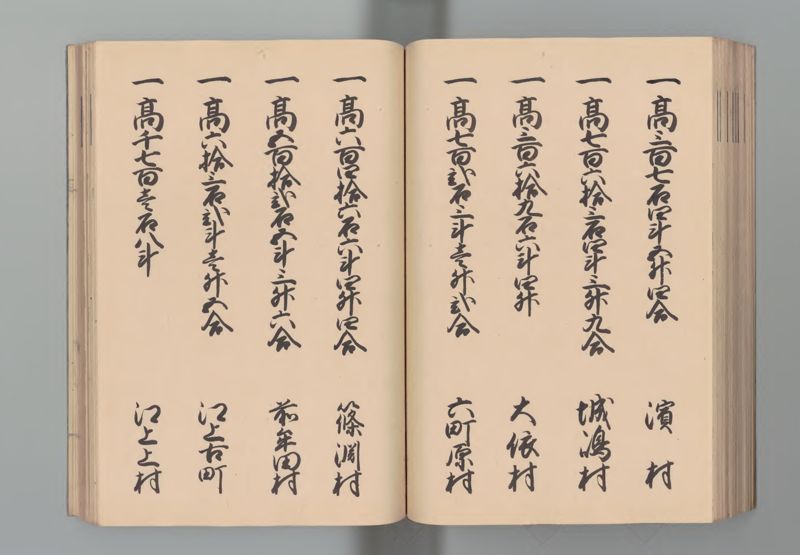 一高三百七石四斗五升四合 濱村
一高七百六拾三石四斗三升九合 城嶋村
一高三百六拾九石六斗四升 大依村
一高七百弐石三斗壱升弐合 六町原村
一高六百四拾六石六斗四升四合 篠渕村
一高五百拾弐石五斗三升六合 前牟田村
一高六拾三石弐斗壱升五合 江上古町
一高千七百壱石八斗 江上上村